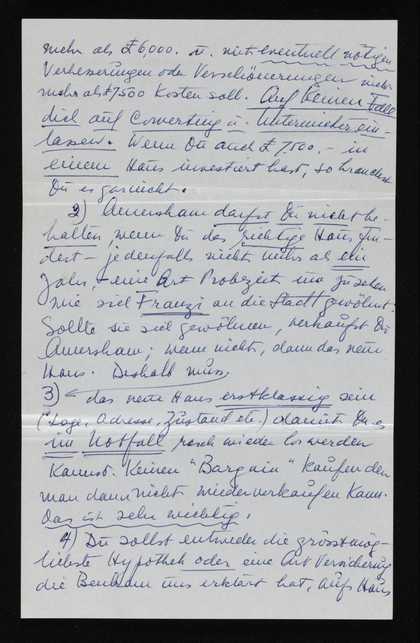 mehr als £ 6,000. u. mit eventuell nötigen
Verbesserungen oder Verschönerungen nicht
mehr als £7500 kosten soll. Auf keinen Fall
dich auf Converting u. Untermieter ein-
lassen. Wenn Du auch £ 7500.- in
einem Haus investiert hast, so brauchst
Du es gar nicht.
2) Amersham darfst Du nicht be-
halten, wenn Du das richtige Haus fin-
dest - jedenfalls nicht mehr als ein
Jahr, - eine Art Probezeit um zu sehen
wie sich Franzi an die Stadt gewöhnt.
Sollte sie sich gewöhnen, verkaufst Du
Amersham; wenn nicht, dann das neue
Haus. Deshalb muss
3) das neue Haus erstklassig sein
(Lage, Adresse, Zustand etc.) damit Du es
im Notfall rasch wieder loswerden
kannst. Keinen "Bargain" kaufen den
man dann nicht wiederverkaufen kann.
Das ist sehr wichtig.
4) Du sollst entweder die grösstmög-
lichste Hypothek oder eine Art Versicherung
die Bentham uns erklärt hat, aufs Haus